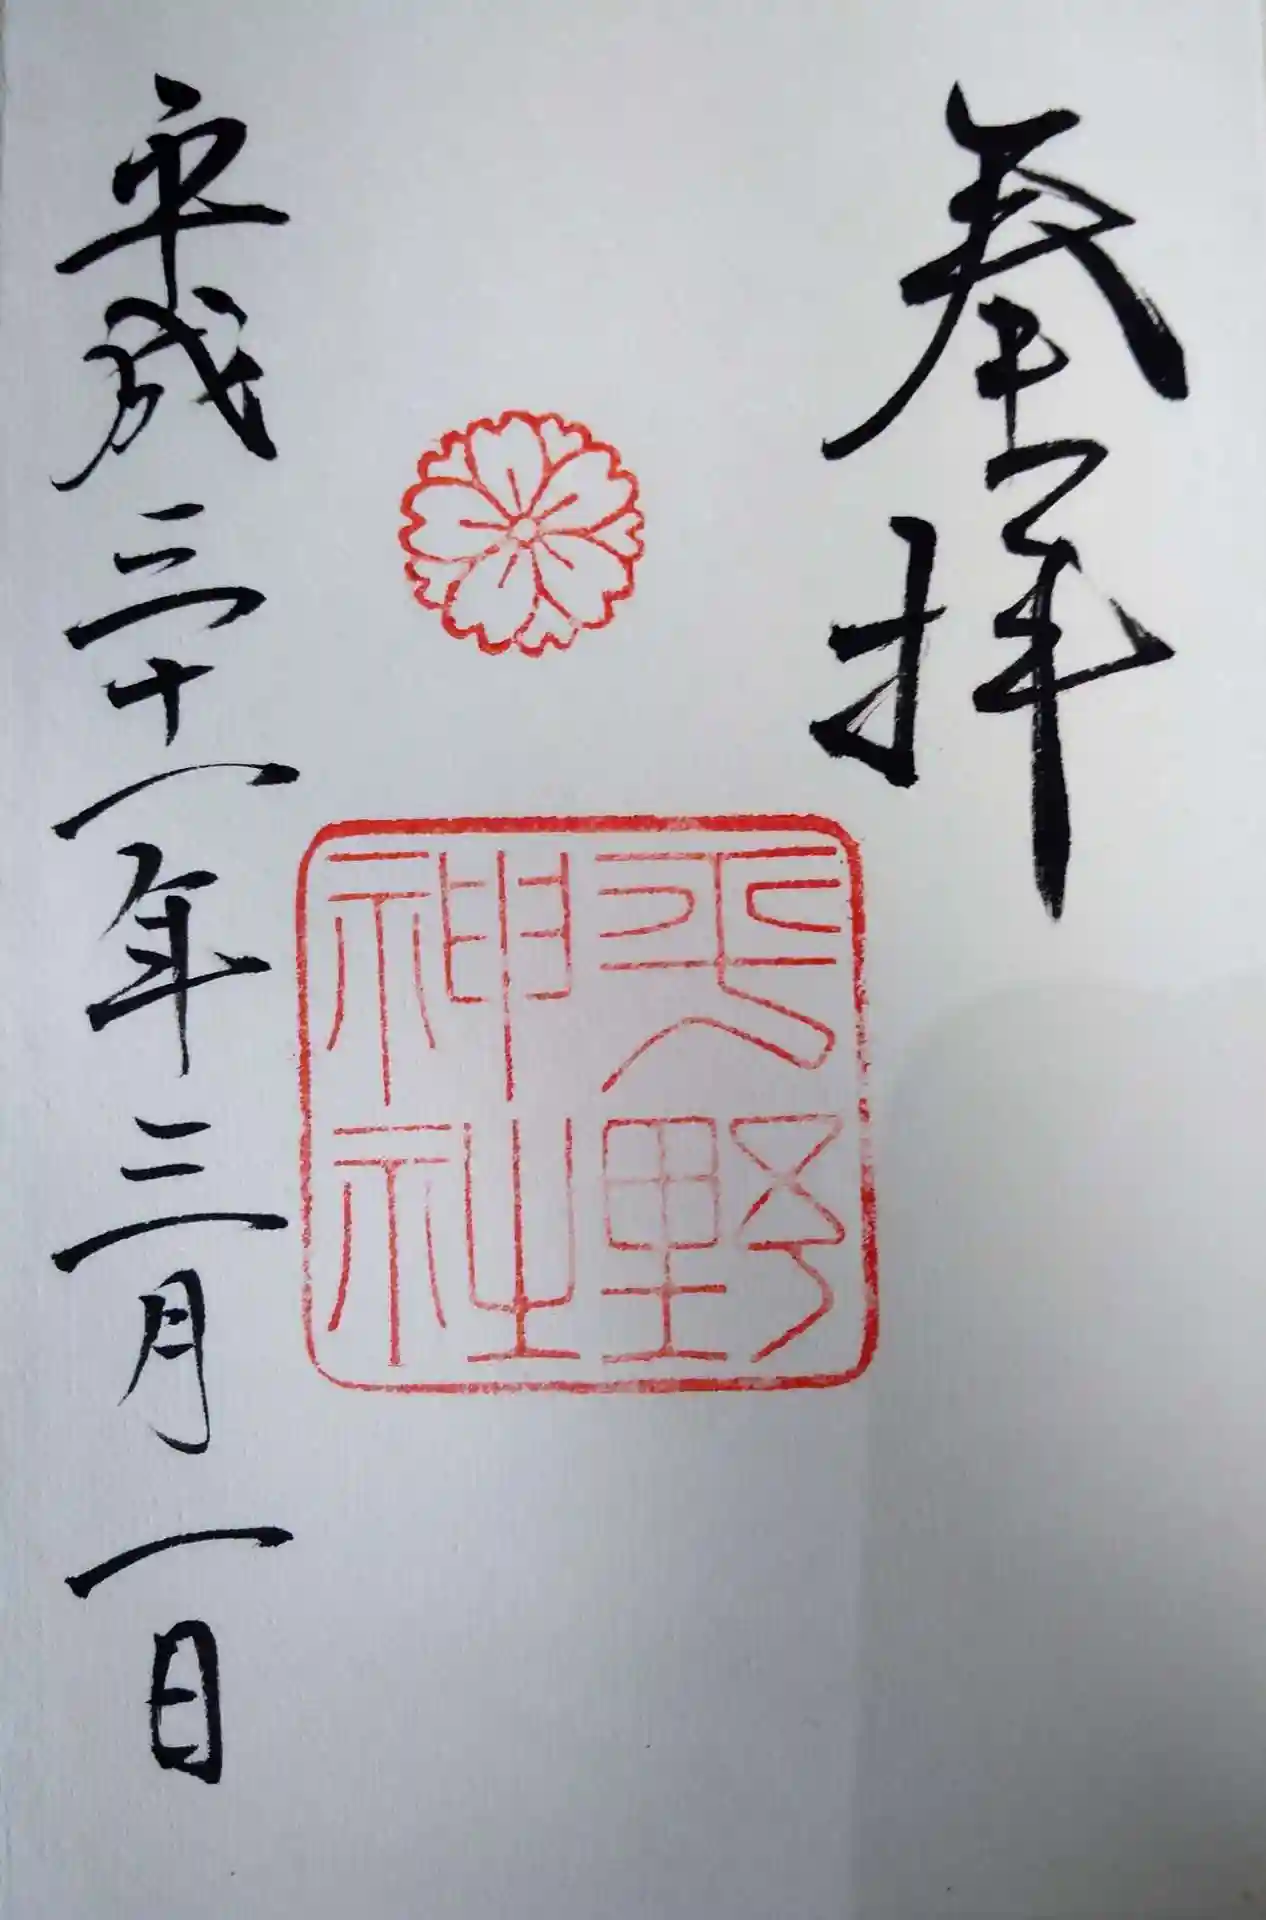 奉拝
平野
神社
平成三十一年三月一日